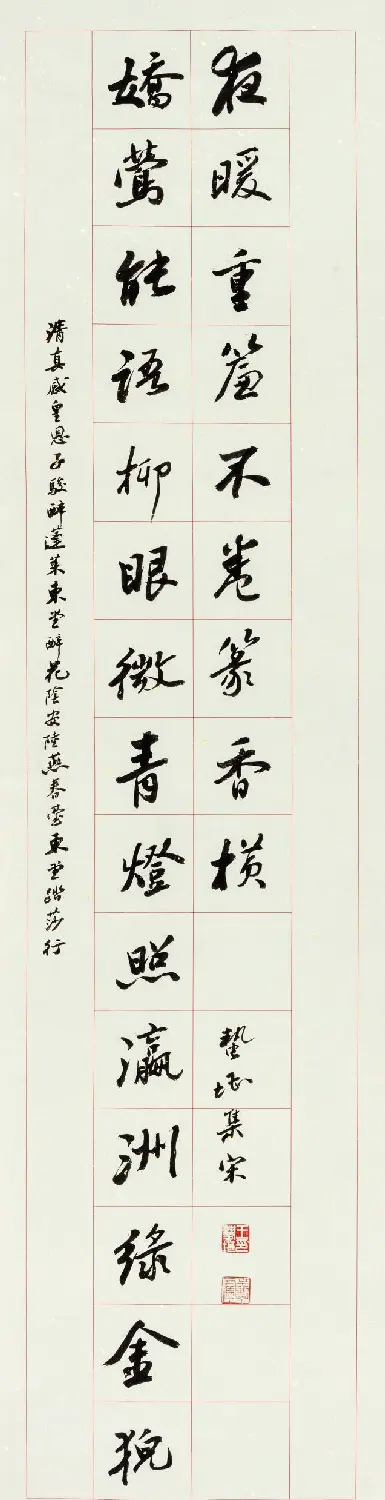 嬌鶯能語柳眼微青燈照瀛洲綠金猊
夜暖重簾不卷篆香橫
蟄堪集宋
清真感皇恩子駿醉蓬萊東堂醉花陰安陸燕春臺東堂踏莎行